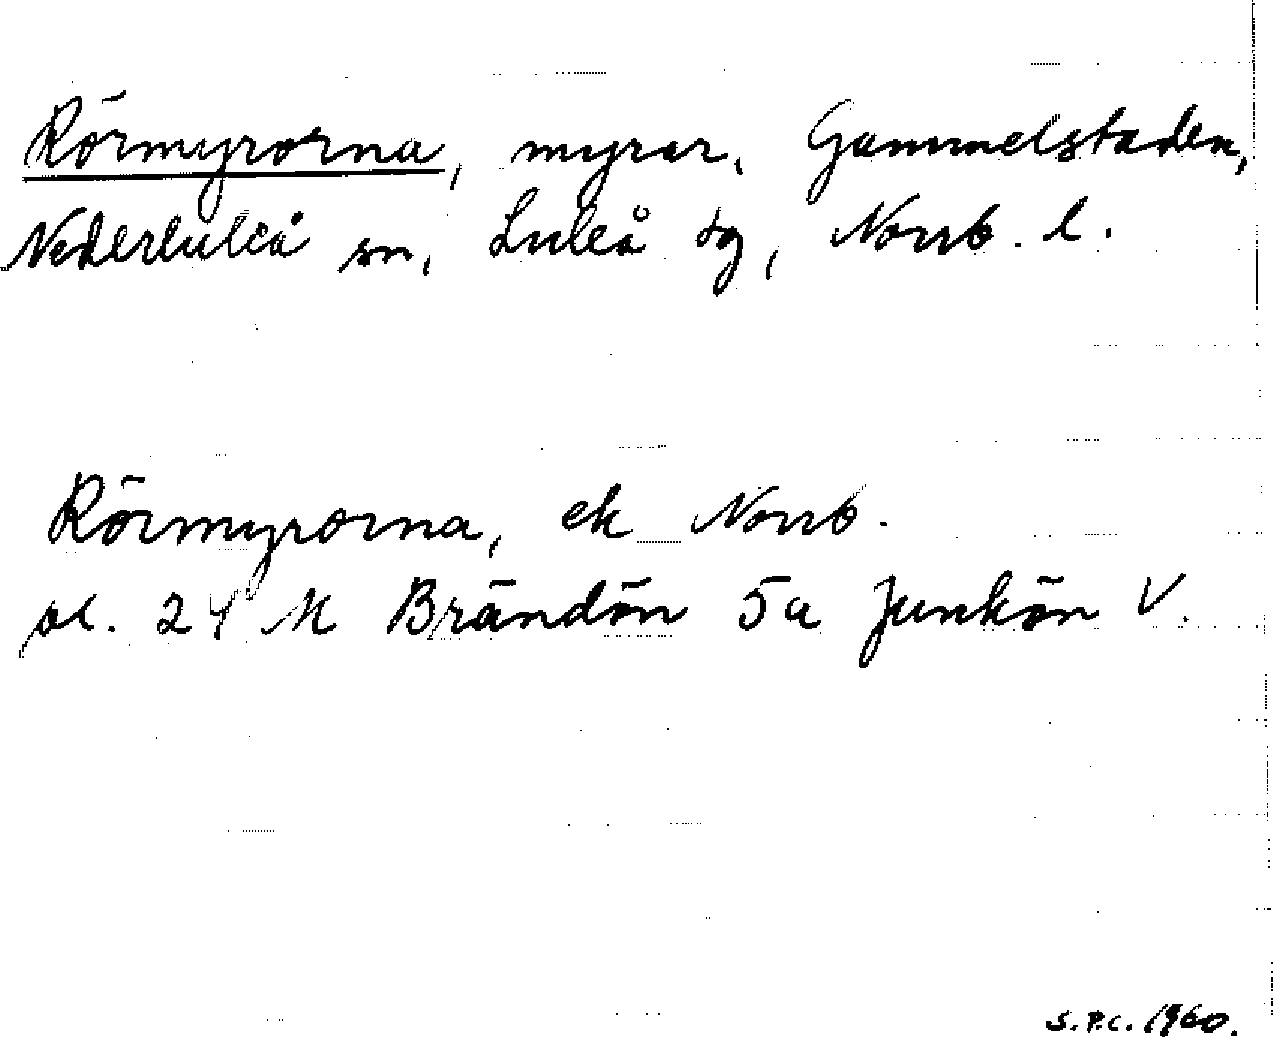 Rörmyrorna, myrar, Gammelstaden,
Nederluleå sn, Luleå tg, Norrb. l.
Rörmyrorna, ek Norrb.
bl. 24 M Brändön 5a Junkön V.
S.P.C. 1960.